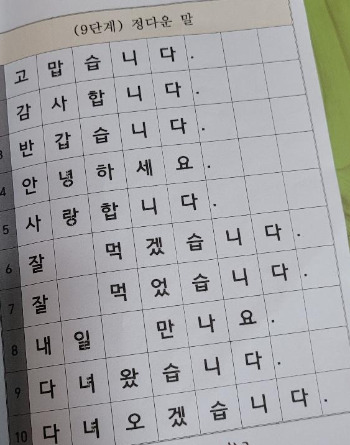 (9단계) 정다운 말
고맙습니다.
감사합니다.
3 반갑습니다.
4 안녕하세요.
5 사랑합니다.
6 잘 먹겠습니다.
7 잘 먹었습니다.
8 내일 만나요.
9 다녀왔습니다.
10 다녀오겠습니다.